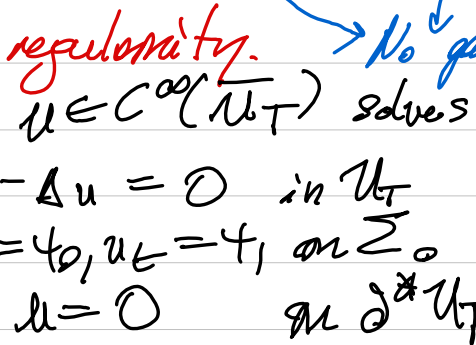 regularity. No
u ∈ C^∞(\overline{U_T}) solves
-Δu = 0 in U_T
= ψ_0, u_t = ψ_1 on Σ_0
u = 0 on ∂^* U_T